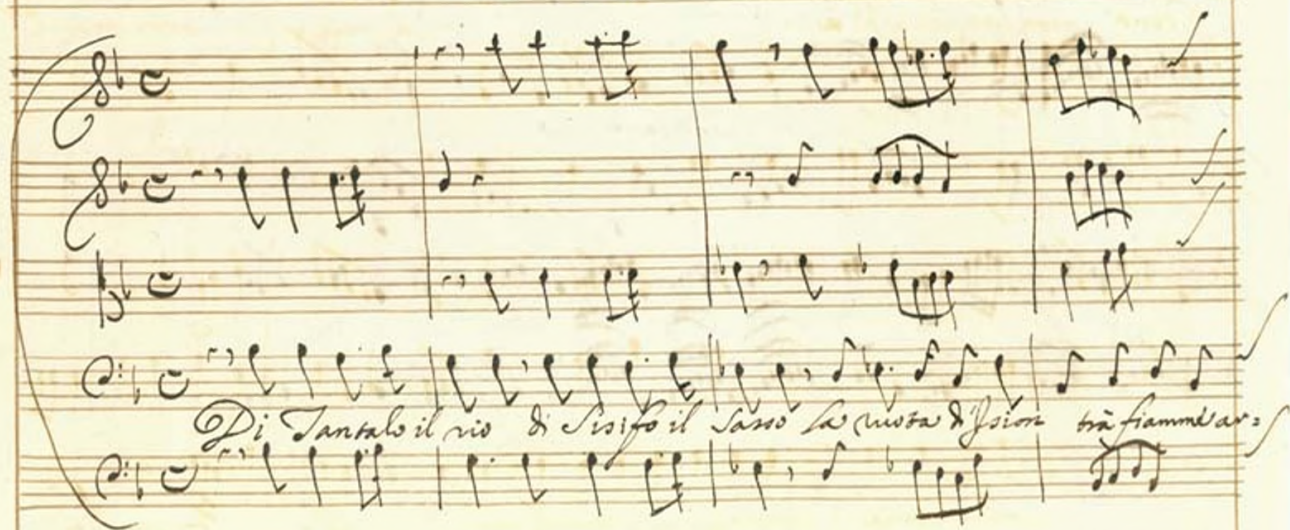 Di Tantalo il rio di Sisifo il sasso la ruota d'Ission trà fiamme ar=